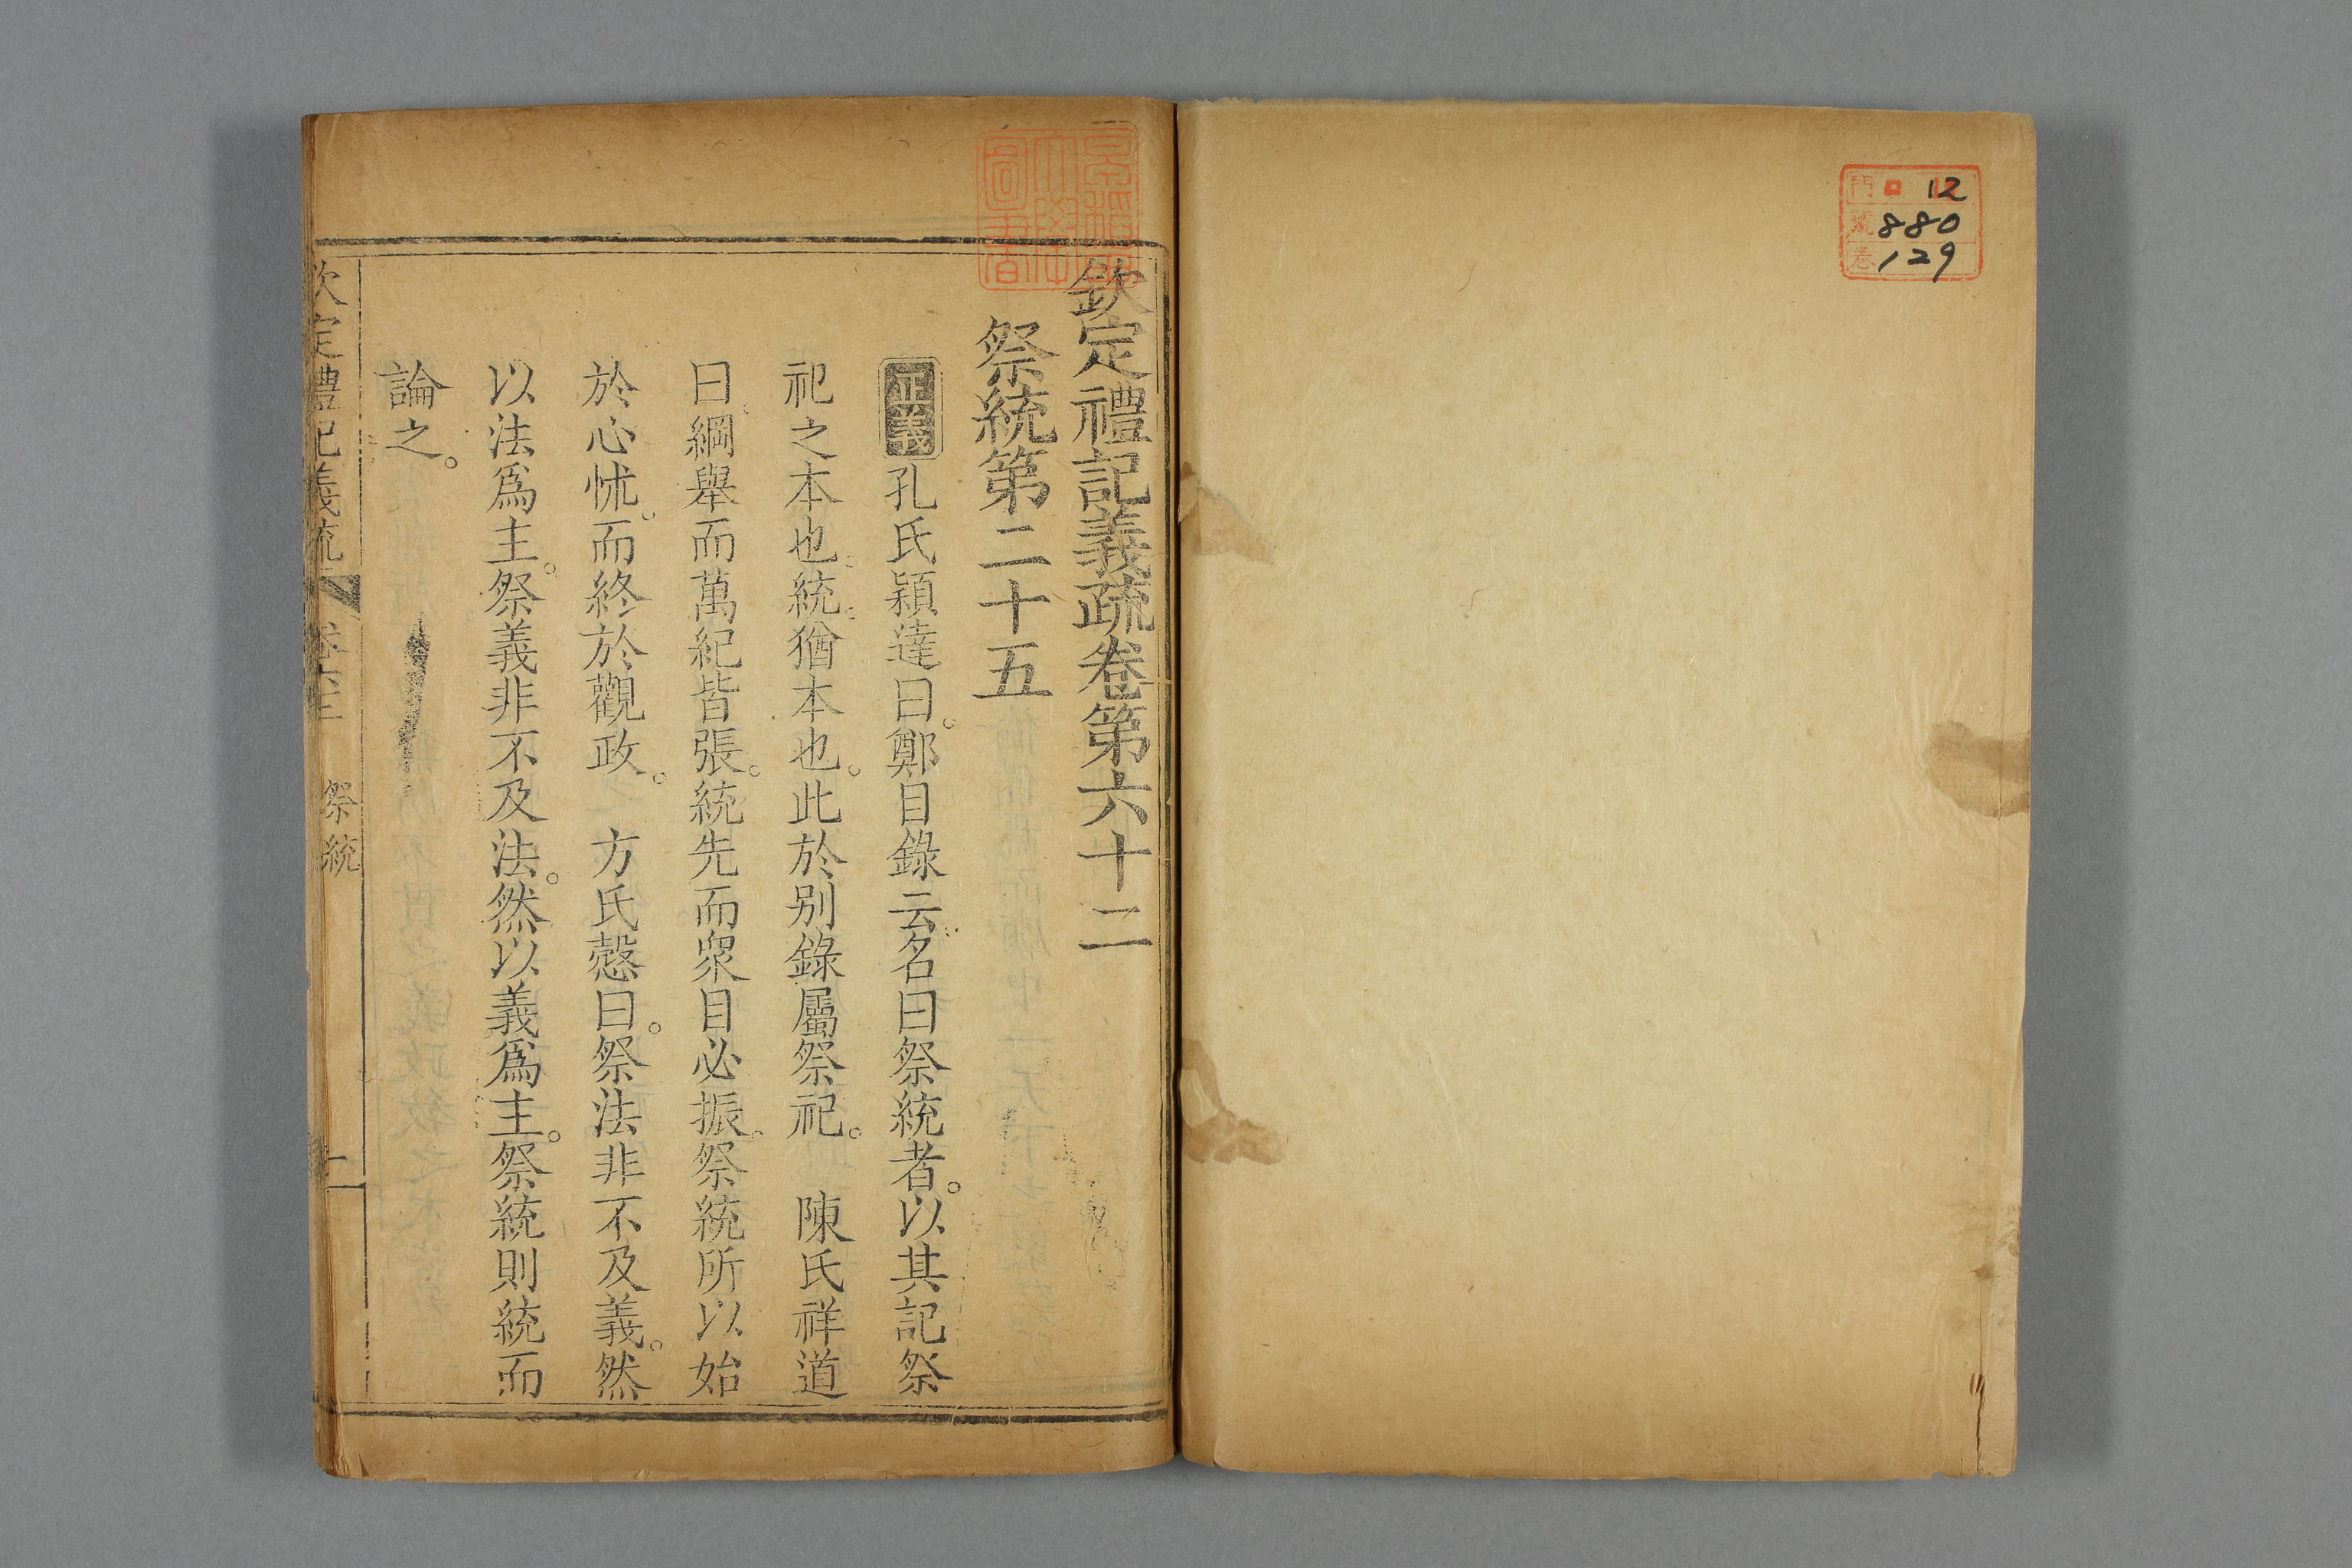 門 12
號 880
卷 129
欽定禮記義疏卷第六十二
祭統第二十五
正義孔氏穎達曰。鄭目錄云。名曰祭統者。以其記祭
祀之本也。統猶本也。此於别錄屬祭祀。 陳氏祥道
曰。綱舉而萬紀皆張。統先而衆目必振。祭統所以始
於心怵。而終於觀政。 方氏慤曰。祭法非不及義。然
以法爲主。祭義非不及法。然以義爲主。祭統則統而
論之。
欽定禮記義疏 祭統